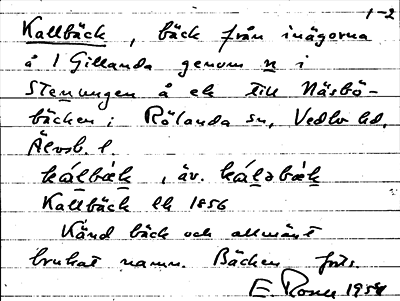 1-2
Kallbäck, bäck från inägorna
å 1 Gillanda genom n i
Stenungen å ek till Näsbö-
bäcken i Rölanda sn, Vedbo hd,
Älvsb. l.
kálbæk, äv. kálabæk
Kallbäck lk 1856
Känd bäck och allmänt
brukat namn. Bäcken forts.
E. 1954